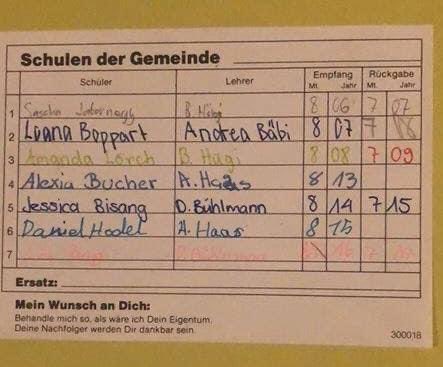 Schulen der Gemeinde
Empfang Rückgabe
Schüler Lehrer Mt. Jahr Mt. Jahr
1 Sascha B. Hügi 8 06 7 07
2 Luana Boppart Andrea Bäbi 8 07 7 08
3 Amanda Lörch B. Hügi 8 08 7 09
4 Alexia Bucher A. Haas 8 13
5 Jessica Bisang D. Bühlmann 8 14 7 15
6 Daniel Hodel A. Haas 8 15
7
Ersatz:
Mein Wunsch an Dich:
Behandle mich so, als wäre ich Dein Eigentum.
Deine Nachfolger werden Dir dankbar sein.
300018